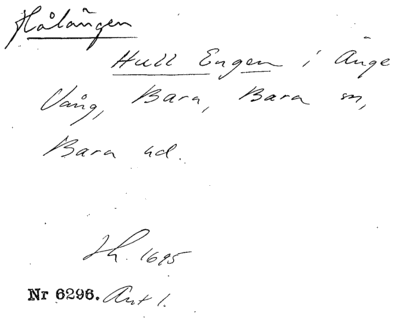 Hålängen
Hull Engen i Änge
Vång, Bara, Bara sn,
Bara hd.
Jh. 1695
Nr 6296. Ant 1.